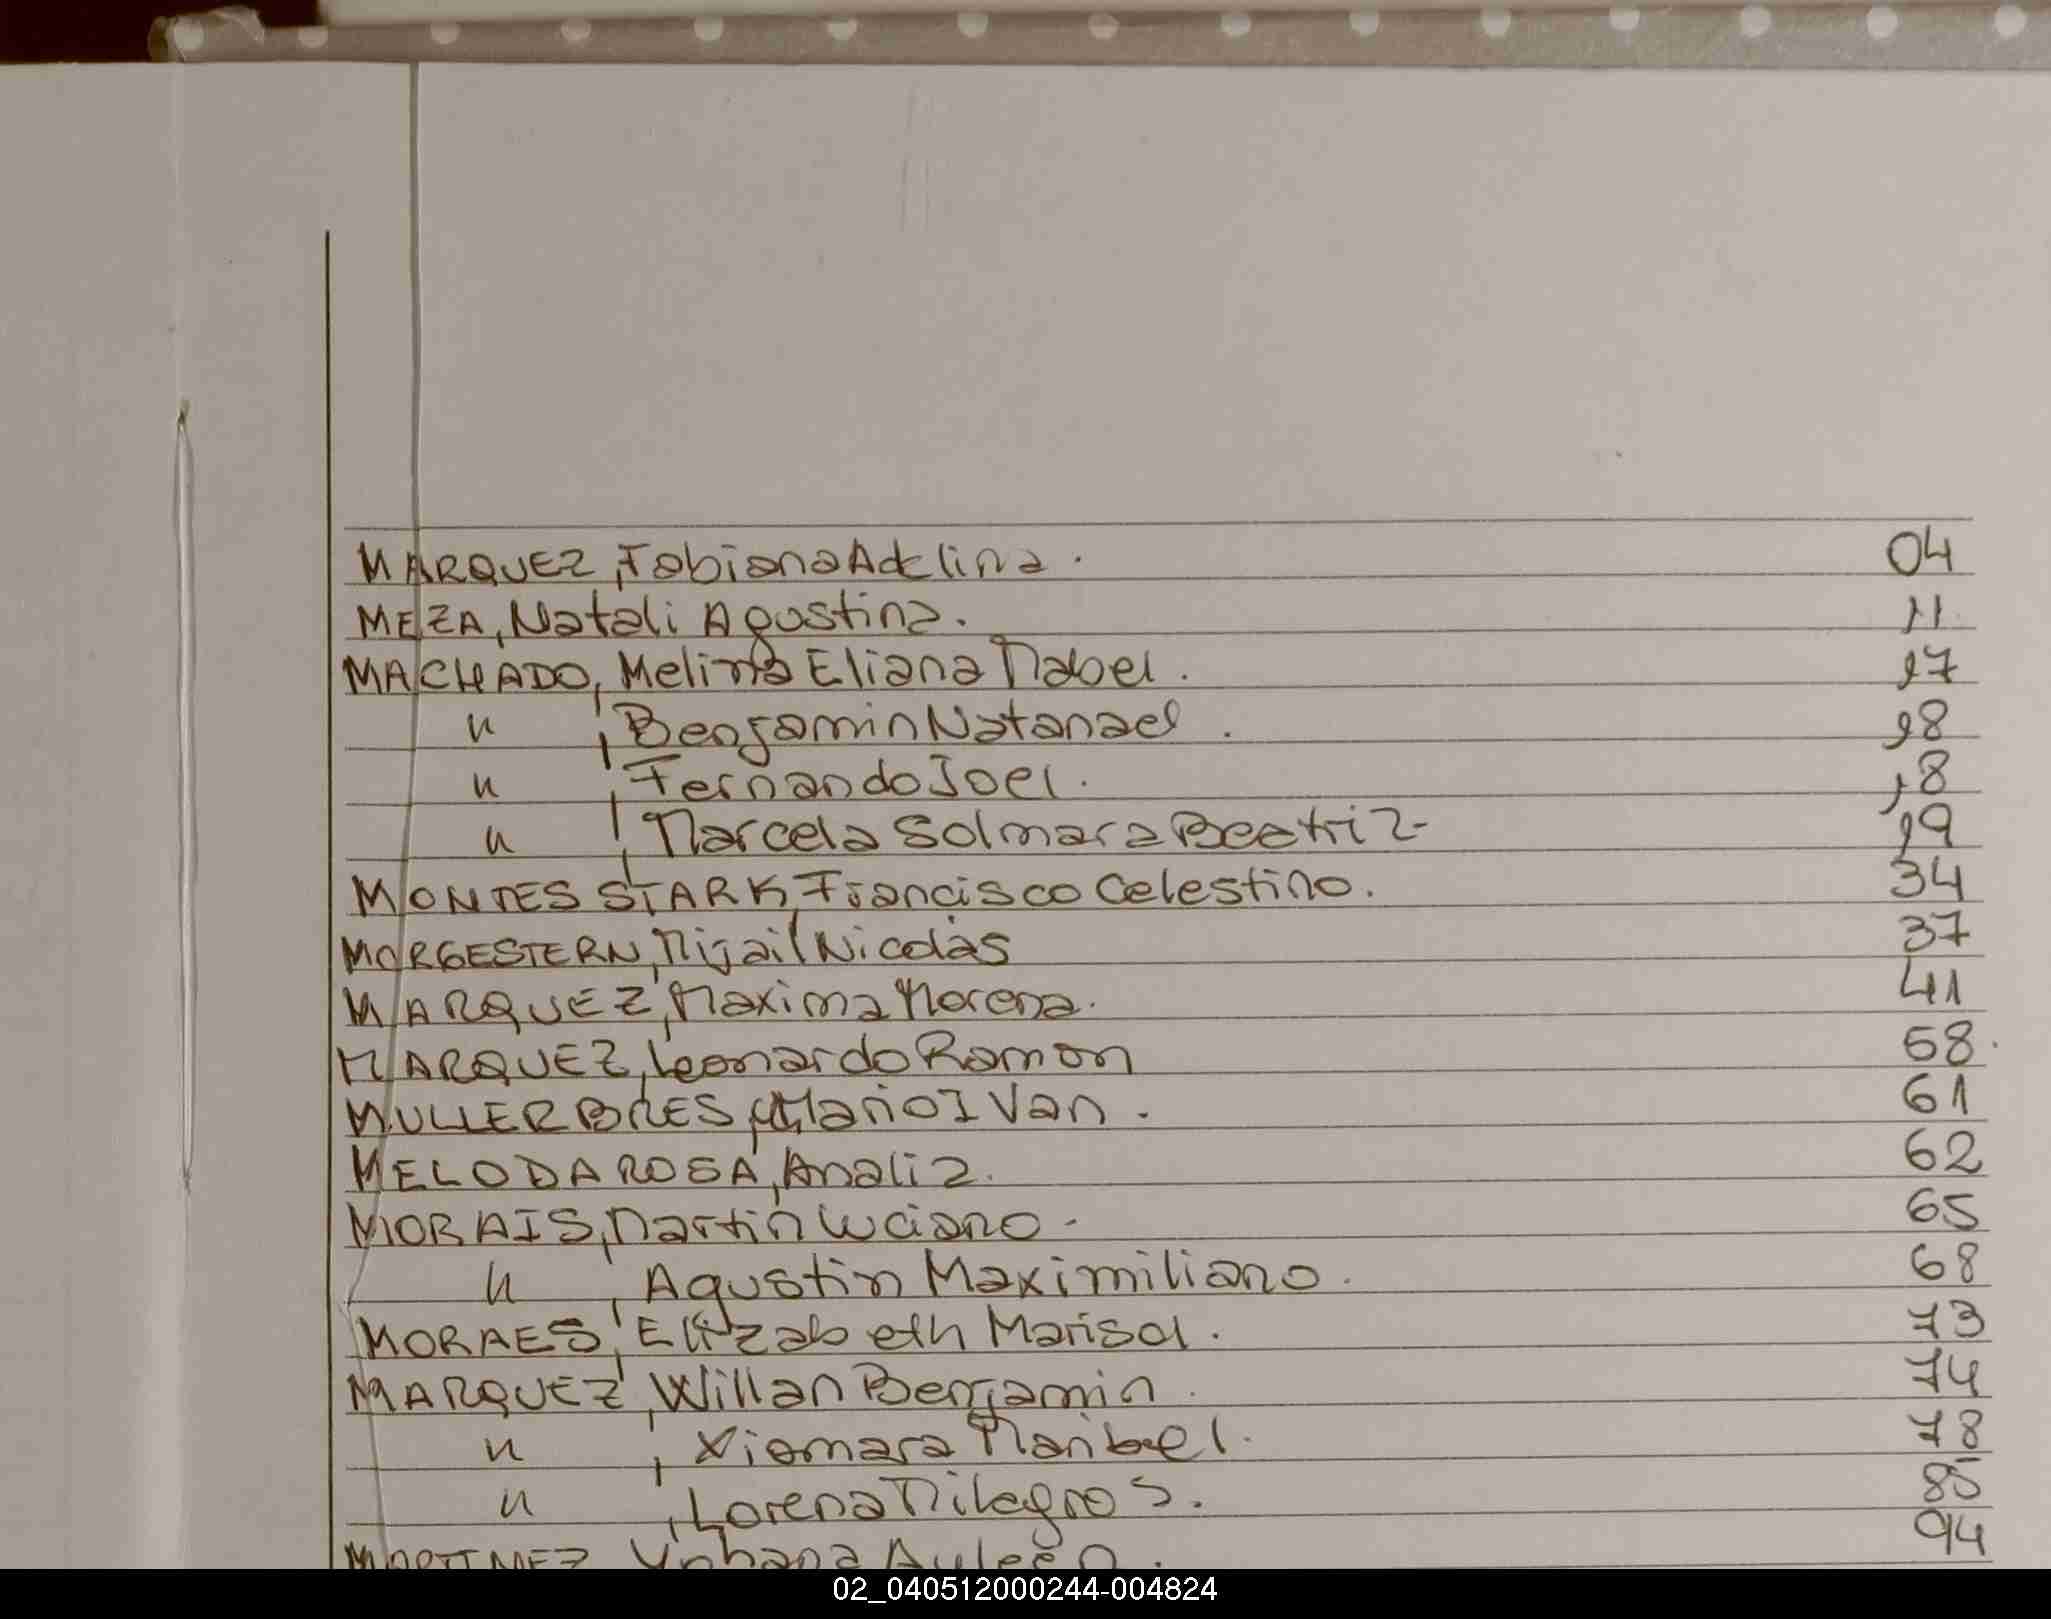 MARQUEZ, Fabiana Adelina. 04
MEZA, Natali Agustina. 11
MACHADO, Melina Eliana Mabel. 17
" , Benjamin Natanael. 18
" , Fernando Joel. 18
" , Marcela Solmara Beatriz- 19
MONTES STARK, Francisco Celestino. 34
MORGESTERN, Mijail Nicolàs 37
MARQUEZ, Maxima Morena. 41
MARQUEZ, Leonardo Ramon 58.
MULLER BRES, Mario Ivan. 61
MELO DA ROSA, Analiz. 62
MORAIS, Martin Luciano. 65
" , Agustin Maximiliano. 68
MORAES, Elizabeth Marisol. 73
MARQUEZ, Willan Benjamin. 74
" , Xiomara Maribel. 78
" , Lorena Milagros. 85
MARTINEZ, Yohana Ayleen. 94
02_040512000244-004824